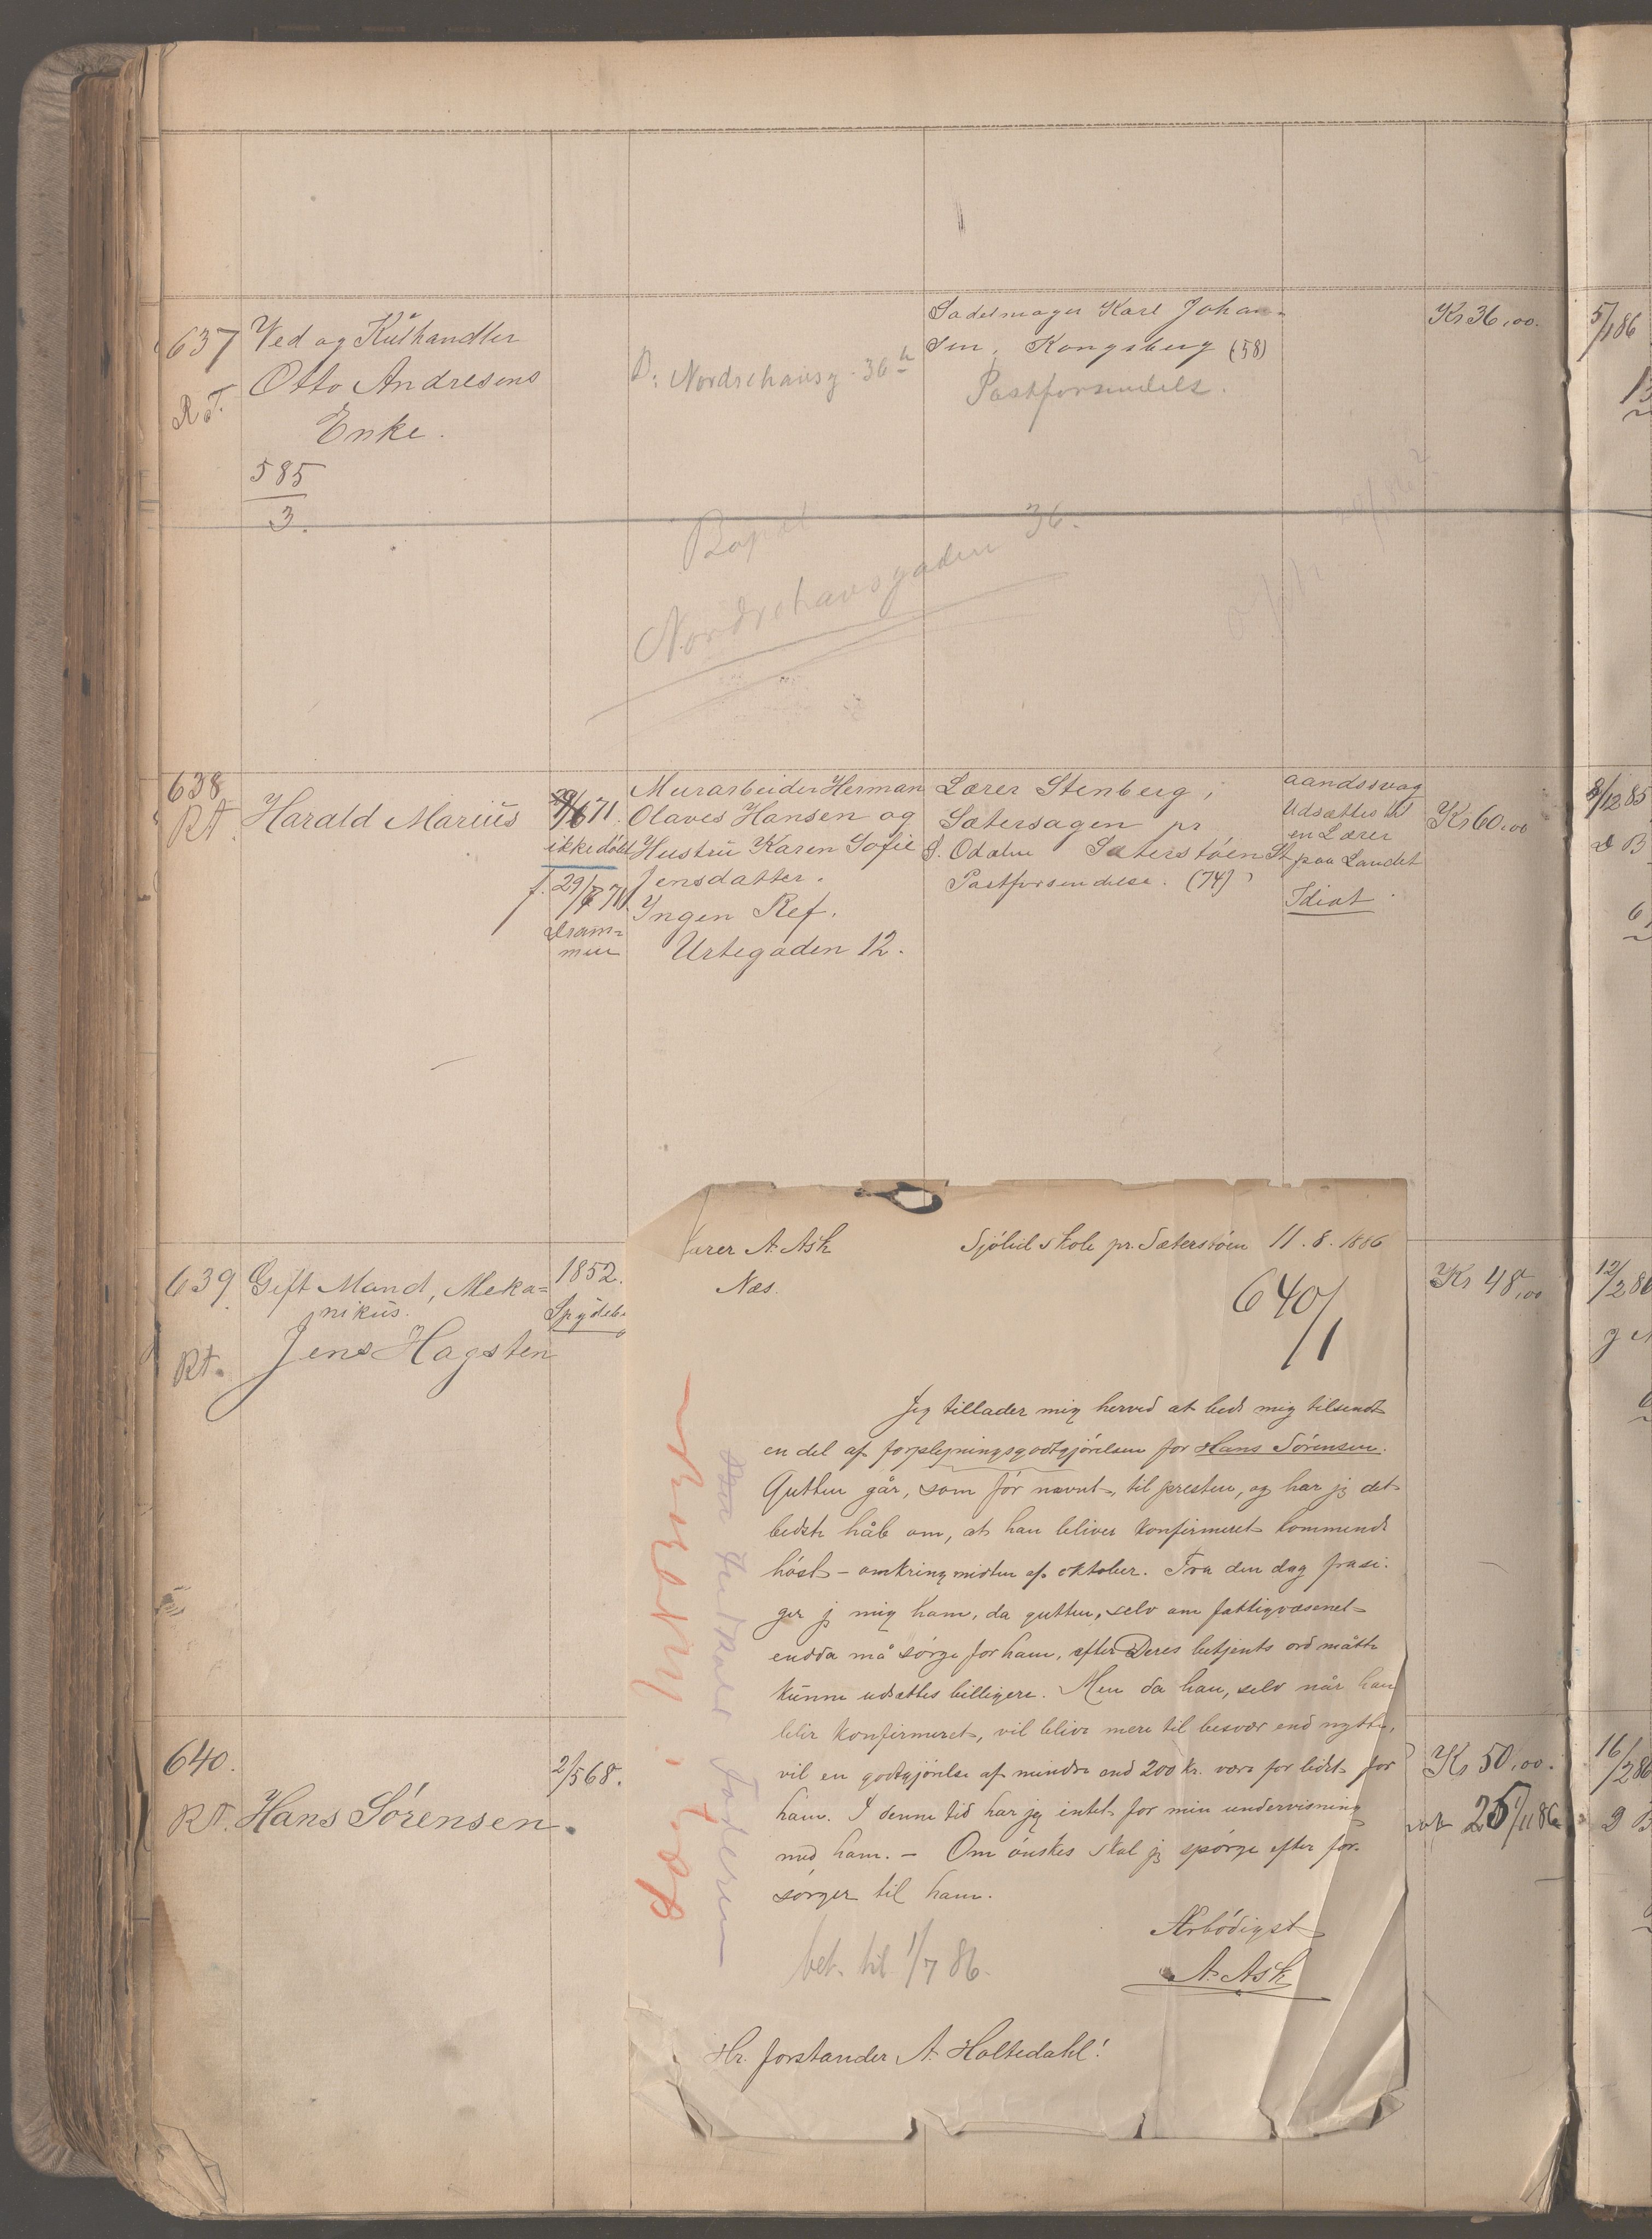 637
R.T.
Ved og Kulhandler
Otto Andresens
Enke.
585
3.
B: Nordrehausg. 36
Sadelmager Karl Johan-
sen, Kongsberg (58)
Postforsendelse.
Kr 36,00.
5/1 86
Bopæl
Nordrehausgaden 36.
638
RT.
Harald Marius
29/6 71.
ikke døbt
f. 29/7 71
Dram-
men
Murarbeider Herman
Olaves Hansen og
Hustru Karen Sofie
Jensdatter.
Ingen Ref.
Urtegaden 12.
Lærer Stenberg i
Sætersagen pr
S. Odalen Sæterstøen St
Postforsendelse. (74)
aandssvag
Udsættes til
en Lærer
paa Landet
Idiot
Kr 60,00
8/12 85
639
RT.
Gift Mand, Meka-
nikus.
Jens Hagsten
1852.
Spydeb.
Kr 48,00
12/2 86
640.
RT.
Hans Sørensen.
2/5 68.
Kr 50,00.
25 1/11 86
16/2 86
Lærer A. Ask
Næs.
Sjølid skole pr. Sæterstøen 11.8.1886
640/1
Jeg tillader mig herved at bede mig tilsendt
en del af forplejningsgodtgjørelsen for Hans Sørensen.
Gutten går, som før nævnt, til presten, og har jeg det
bedste håb om, at han bliver konfirmeret kommende
høst – omkring midten af oktober. Fra den dag frasi-
ger jeg mig ham, da gutten, selv om fattigvæsenet
endda må sørge for ham, efter Deres betjents ord måtte
kunne udsættes billigere. Men da han, selv når han
blir konfirmeret, vil blive mere til besvær end nytte,
vil en godtgjørelse af mindre end 200 kr. være for lidet for
ham. I denne tid har jeg intet for min undervisning
med ham. – Om ønskes skal jeg spørge efter for-
sørger til ham.
Ærbødigst
A. Ask
bet. til 1/7 86.
Hr. forstander A. Holtedahl!